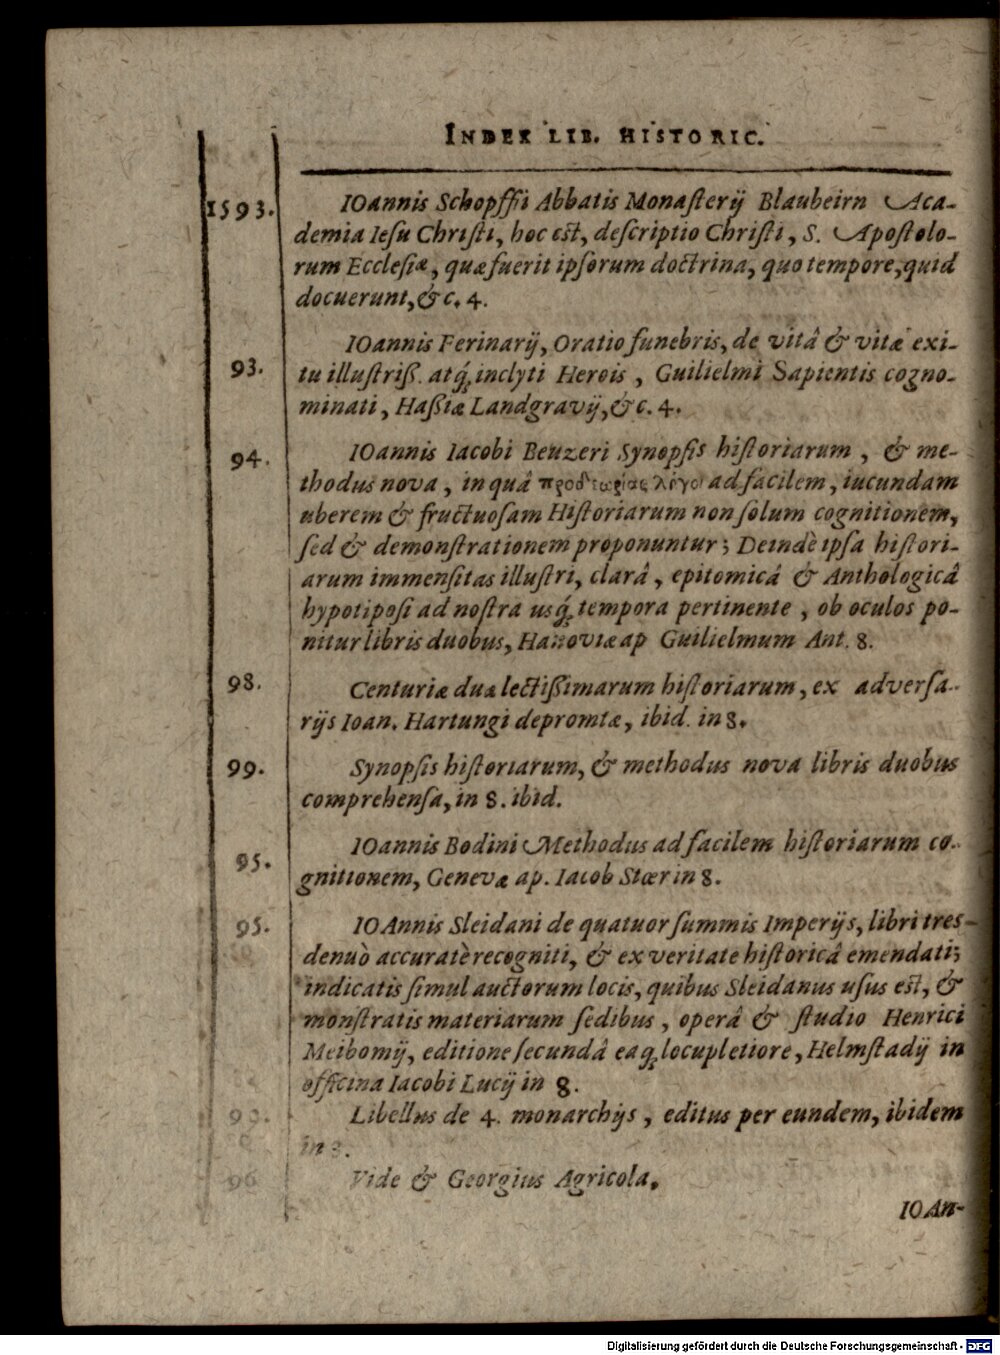 INDEX LIB. HISTORIC.
1593. IOannis Schopffii Abbatis Monasterij Blaubeirn Aca-
demia Iesu Christi, hoc est, descriptio Christi, S. Apostolo-
rum Ecclesiæ, quæ fuerit ipsorum doctrina, quo tempore, quid
docuerunt, &c. 4.
IOannis Ferinarij, Oratio funebris, de vitâ & vitæ exi-
93. tu illustriß. atq́; inclyti Herois, Guilielmi Sapientis cogno-
minati, Haßiæ Landgravij, &c. 4.
94. IOannis Iacobi Beuzeri Synopsis historiarum, & me-
thodus nova, in quâ λόγοι ad facilem, iucundam
uberem & fructuosam Historiarum non solum cognitionem,
sed & demonstrationem proponuntur; Deindè ipsa histori-
arum immensitas illustri, clarâ, epitomicâ & Anthologicâ
hypotiposi ad nostra usq́; tempora pertinente, ob oculos po-
nitur libris duobus, Hanoviæ ap Guilielmum Ant. 8.
98. Centuriæ duæ lectißimarum historiarum, ex adversa-
rijs Ioan. Hartungi depromtæ, ibid. in 8.
99. Synopsis historiarum, & methodus nova libris duobus
comprehensa, in 8. ibid.
IOannis Bodini Methodus ad facilem historiarum co-
95. gnitionem, Genevæ ap. Iacob Stœr in 8.
95. IOAnnis Sleidani de quatuor summis Imperijs, libri tres
denuò accuratè recogniti, & ex veritate historicâ emendati;
indicatis simul auctorum locis, quibus Sleidanus usus est, &
monstratis materiarum sedibus, operâ & studio Henrici
Meibomij, editione secundâ eaq́; locupletiore, Helmstadij in
officina Iacobi Lucij in 8.
Libellus de 4. monarchijs, editus per eundem, ibidem
in 8.
96 Vide & Georgius Agricola.
IOAn-
Digitalisierung gefördert durch die Deutsche Forschungsgemeinschaft - DFG